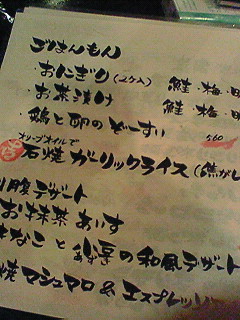 ごはんもん
・おにぎり(2ケ入) 鮭・梅・明
・お茶漬け 鮭・梅・明
・鶏と卵のぞーすい
560
オリーブオイルで
石焼ガーリックライス(焦がし
別腹デザート
お抹茶あいす
なこと
の和風デザート
焼マシュマロ&エスプレッソ